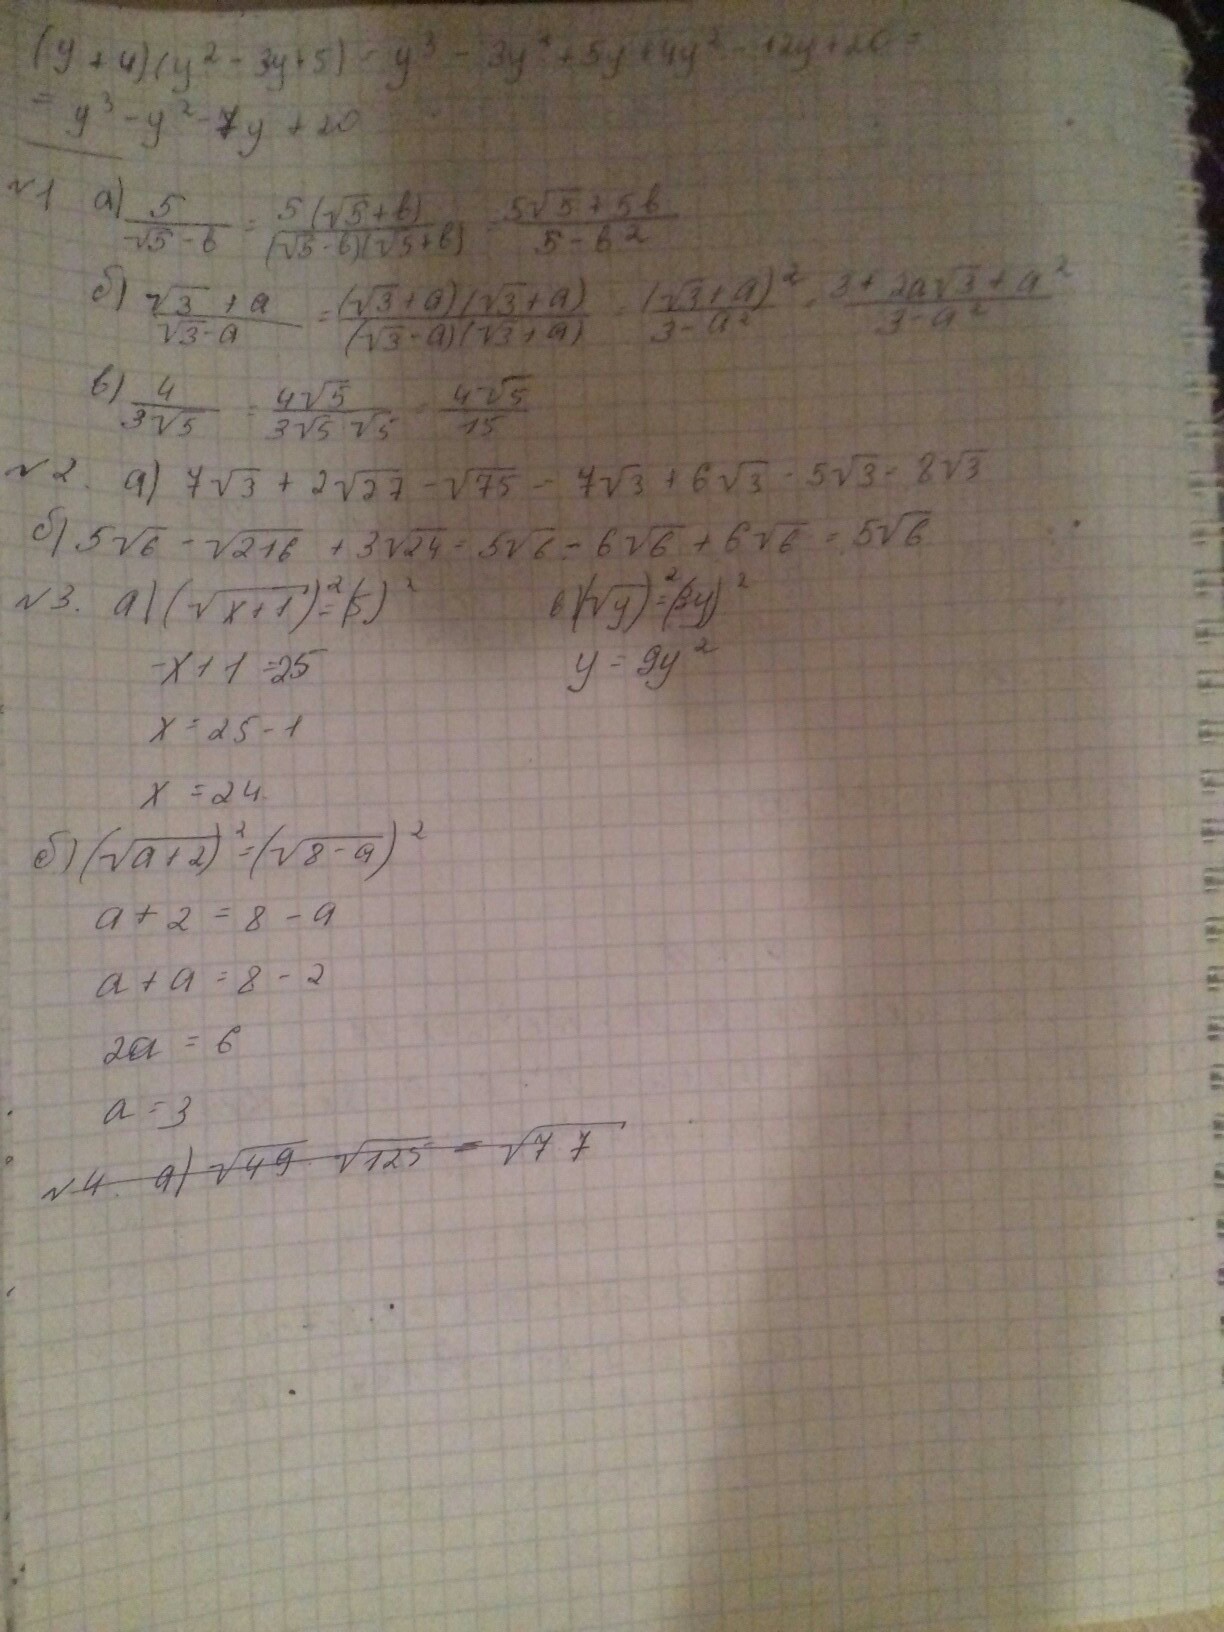 (y + 4)(y² - 3y + 5) = y³ - 3y² + 5y + 4y² - 12y + 20 =
= y³ - y² - 7y + 20
№1 а) 5/(√5 - b) = 5(√5 + b)/((√5 - b)(√5 + b)) = (5√5 + 5b)/(5 - b²)
б) (√3 + a)/(√3 - a) = (√3 + a)(√3 + a)/((√3 - a)(√3 + a)) = (√3 + a)²/(3 - a²) = (3 + 2a√3 + a²)/(3 - a²)
в) 4/(3√5) = 4√5/(3√5 √5) = 4√5/15
№2. а) 7√3 + 2√27 - √75 = 7√3 + 6√3 - 5√3 = 8√3
б) 5√6 - √216 + 3√24 = 5√6 - 6√6 + 6√6 = 5√6
№3. а) (√(x+1))² = (5)² в) (√y)² = (3y)²
x + 1 = 25 y = 9y²
x = 25 - 1
x = 24.
б) (√(a+2))² = (√(8-a))²
a + 2 = 8 - a
a + a = 8 - 2
2a = 6
a = 3
№4. а) √49 · √125 = √7 7